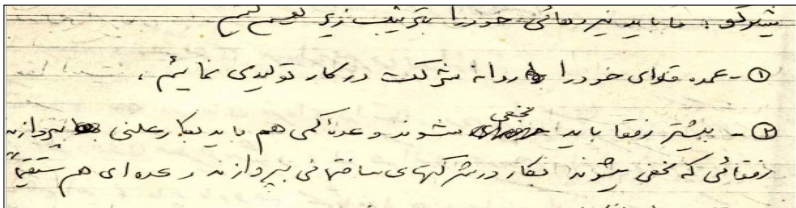 پیشوکو : ما باید نیروهائی خودرا بترتیب زیر تقسیم کنیم
① - عمده قوای خودرا روانه شرکت در کار تولیدی نمائیم ،
② - بیشتر رفقا باید مخفی شوند و عدهٔ کمی هم باید بکار علنی بپردازند
رفقائی که مخفی میشوند بکار در شرکتهای ساختمانی بپردازند و عده ای هم مستقیماً